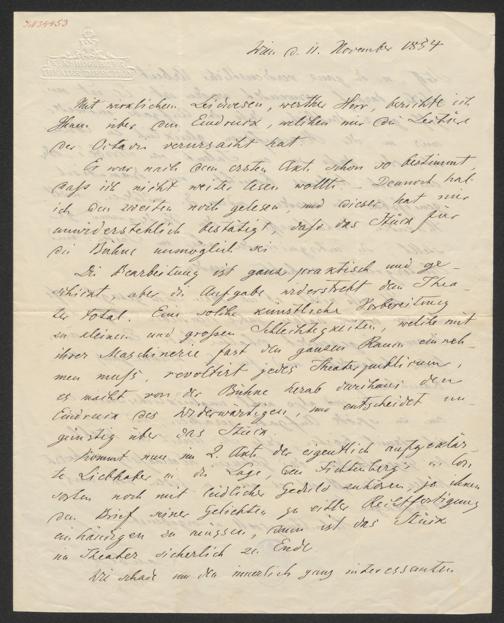 Wien d. 11. November 1854
Mit wirklichem Leidwesen, werther Herr, berichte ich
Ihnen über den Eindruck, welchen mir die Lectüre
der Octavia verursacht hat.
Es war nach dem ersten Akt schon so bestimmt
daß ich nicht weiter lesen wollte. Dennoch hab
ich den zweiten noch gelesen, und dieser hat mir
unwiderstehlich bestätigt, daß das Stück für
die Bühne unmöglich sei.
Die Bearbeitung ist ganz praktisch und ge-
aber die Aufgabe widerstrebt dem Thea-
ter total. Eine solche künstliche Vorbereitung
zu kleinen und großen Schlechtigkeiten, welche mit
ihrer Maschinerie fast den ganzen Raum einneh-
men muß, revoltirt jedes Theaterpublicum,
es macht von der Bühne herab durchaus den
Eindruck des Widerwärtigen, und entscheidet un-
günstig über das Stück.
Kommt nun im 2. Akte der eigentlich aufgeklär-
te Liebhaber in die Lage,
noch mit leidlicher Geduld zuhören, ja ihnen
den Brief seiner Geliebten zu Rechtfertigung
zu müssen, dann ist das Stück
im Theater sicherlich zu Ende.
Wie schade um den innerlich ganz interessanten